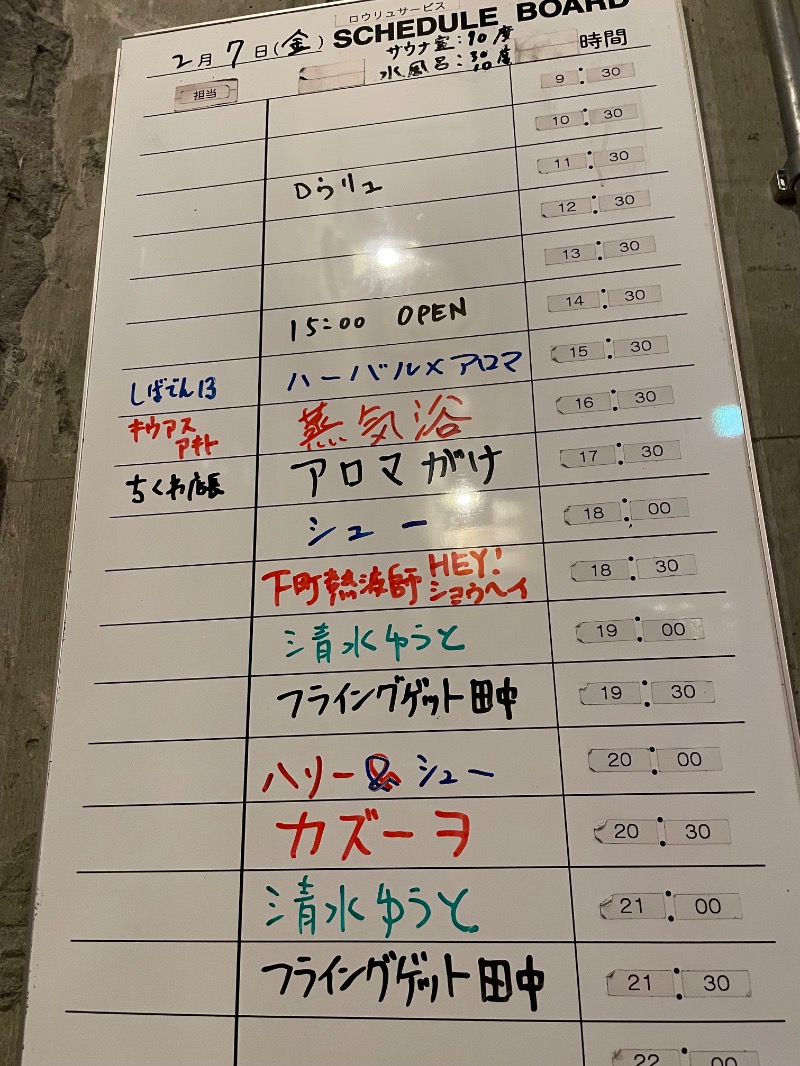 ロウリュサービス
SCHEDULE BOARD
2月7日(金)
サウナ室:90度
水風呂:30
10度
時間
担当
9:30
10:30
11:30
ロウリュ
12:30
13:30
14:30
15:00 OPEN
15:30
しばでん13 ハーバル×アロマ
16:30
キウアス
アキト
蒸気浴
17:30
ちくわ店長 アロマがけ
18:00
シュー
18:30
下町熱波師 HEY!
ショウヘイ
19:00
清水ゆうと
19:30
フライングゲット田中
20:00
ハリー&シュー
20:30
カズーヨ
21:00
清水ゆうと
21:30
フライングゲット田中
22:00